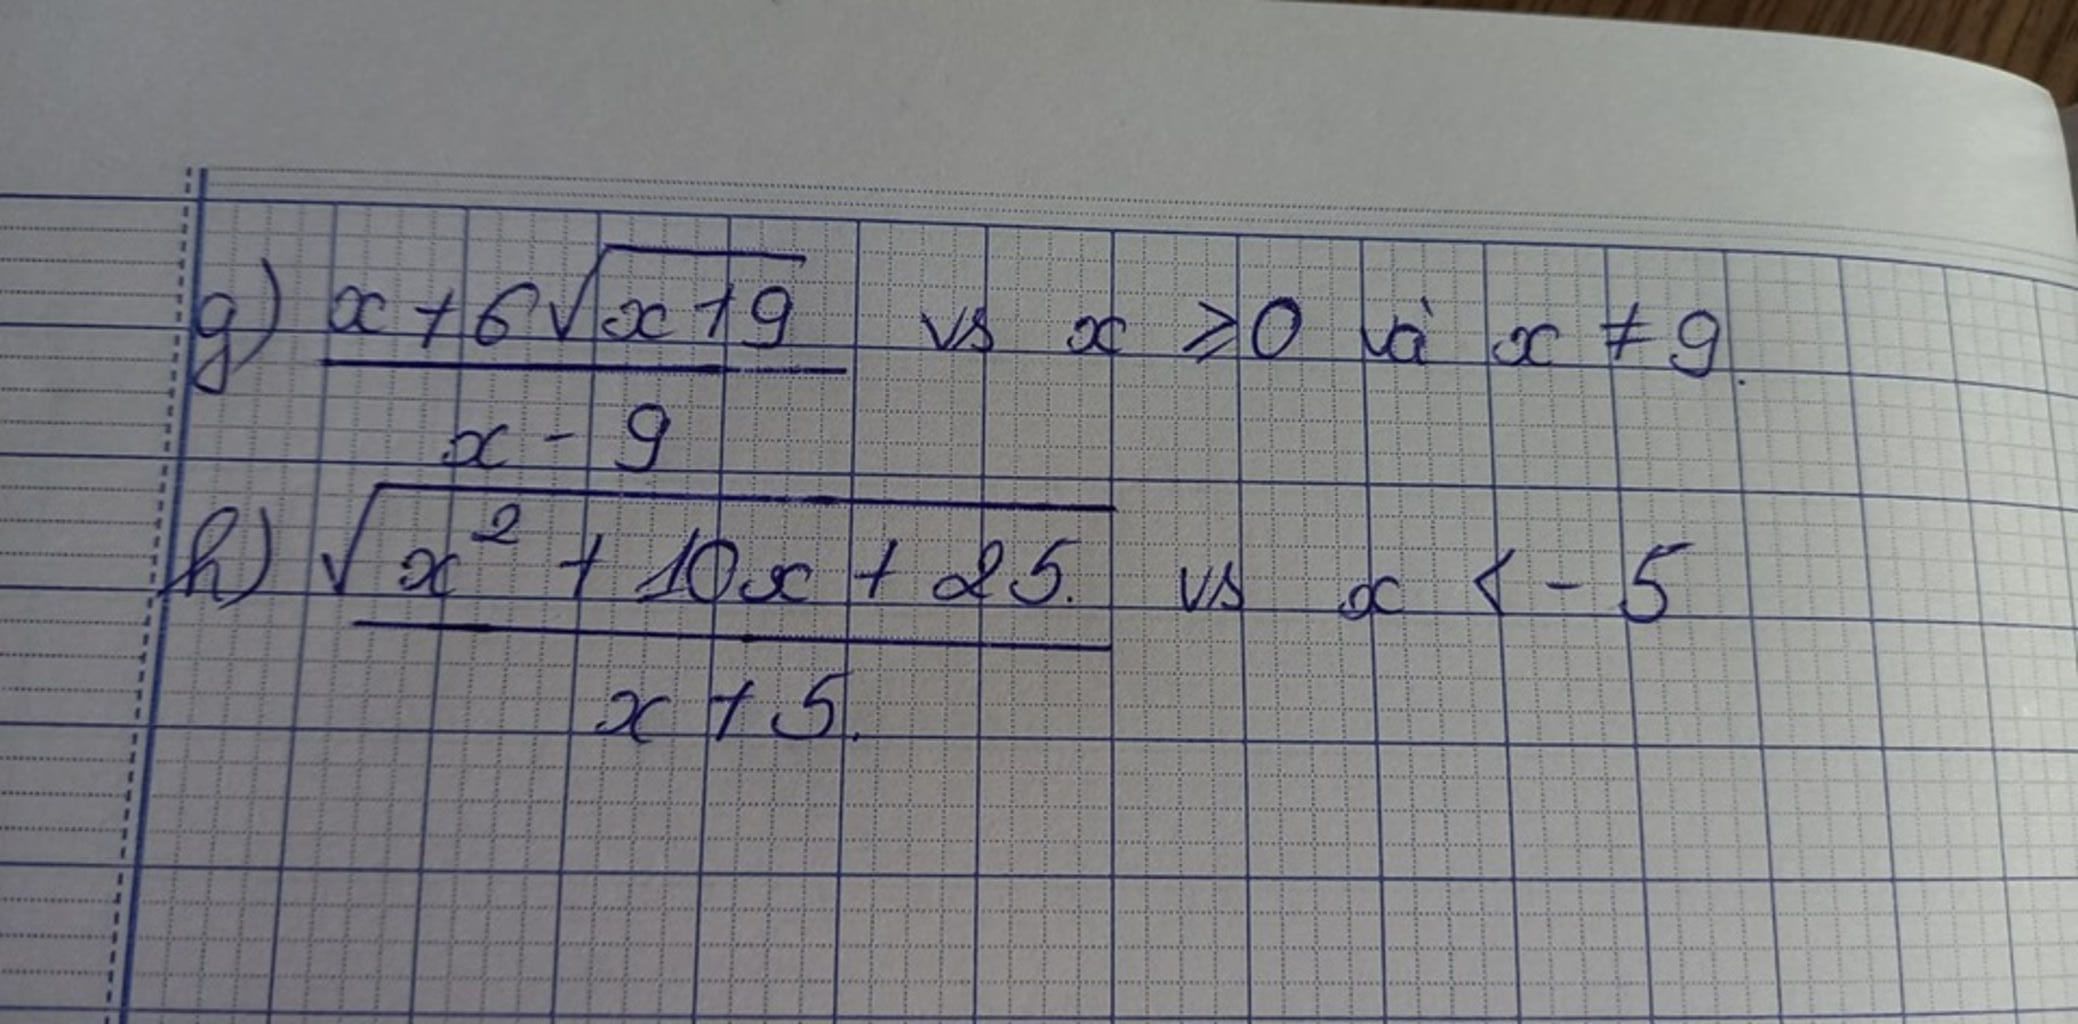 g) x + 6√(x + 9) / (x - 9) vs x ⩾ 0 và x ≠ 9.
h) √(x² + 10x + 25.) / (x + 5.) vs x < - 5